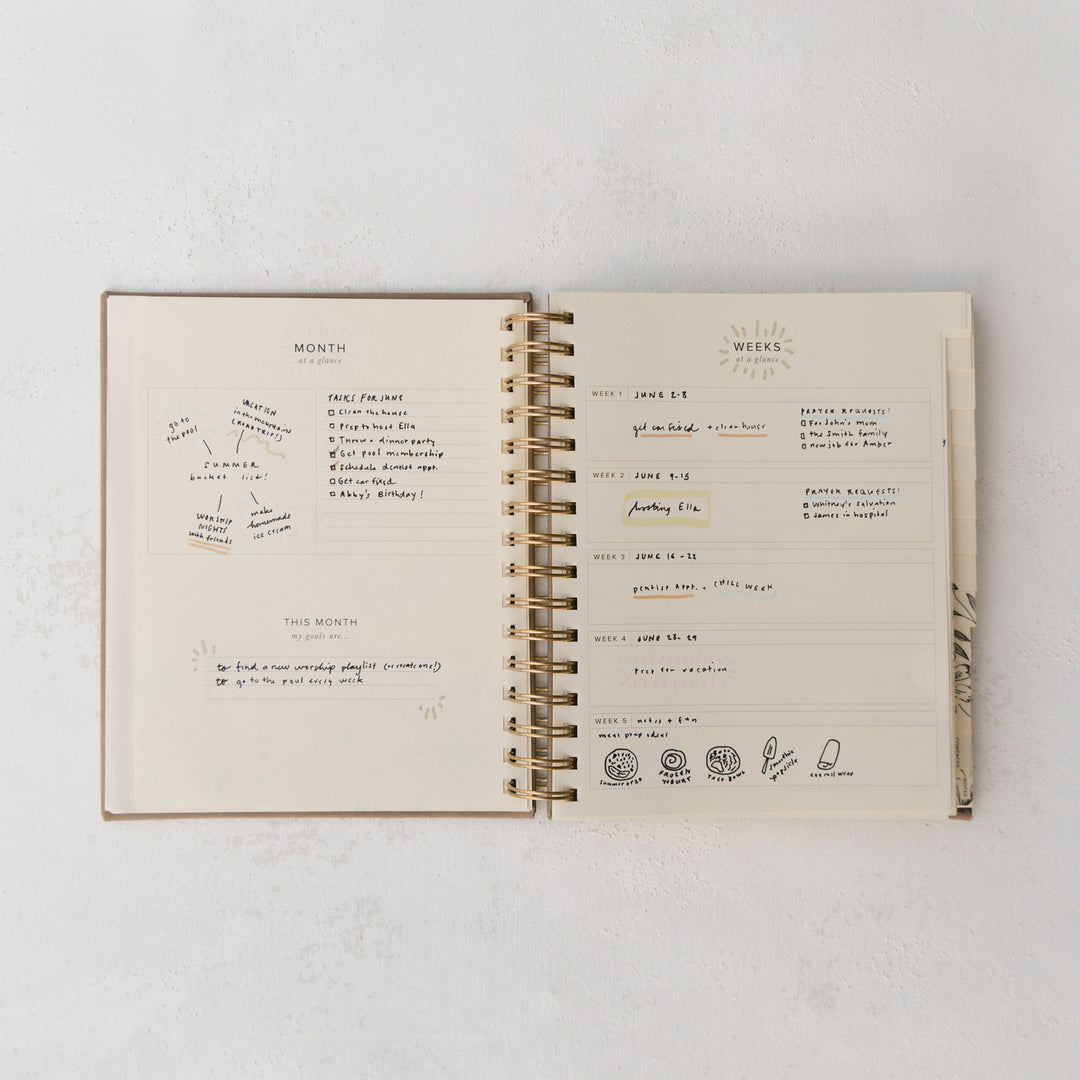 MONTH
at a glance
go to
the pool
VACATION
in the mountains
(ROAD TRIP!)
SUMMER
bucket list!
WORSHIP
NIGHTS
with friends
make
homemade
ice cream
TASKS FOR JUNE
Clean the house
Prep to host Ella
Throw a dinner party
Get pool membership
Schedule dentist appt.
Get car fixed
Abby's Birthday!
THIS MONTH
my goals are...
to find a new worship playlist (or create one!)
to go to the pool every week
WEEKS
at a glance
WEEK 1 JUNE 2-8
get car fixed + clean house
PRAYER REQUESTS:
For John's mom
the Smith family
new job for Amber
WEEK 2 JUNE 9-15
hosting Ella
PRAYER REQUESTS:
Whitney's salvation
James in hospital
WEEK 3 JUNE 16-22
Dentist Appt. + CHILL WEEK
WEEK 4 JUNE 23-29
Prep for vacation
WEEK 5 notes + fun
meal prep ideas
summer orzo
FROZEN
YOGURT
TACO BOWL
smoothie
popsicle
egg roll wrap
CONTACTS
NOTES